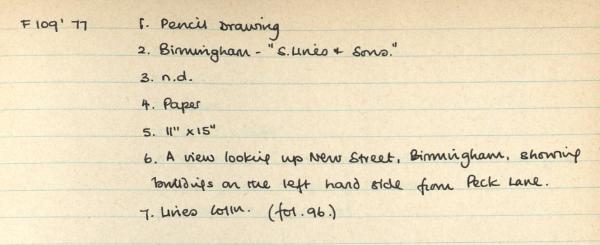 F109'77 1. Pencil Drawing
2. Birmingham - "S. Lines & Sons."
3. n.d.
4. Paper
5. 11" x 15"
6. A view looking up New Street, Birmingham, showing
buildings on the left hand side from Peck Lane.
7. Lines Colln. (fol. 96.)